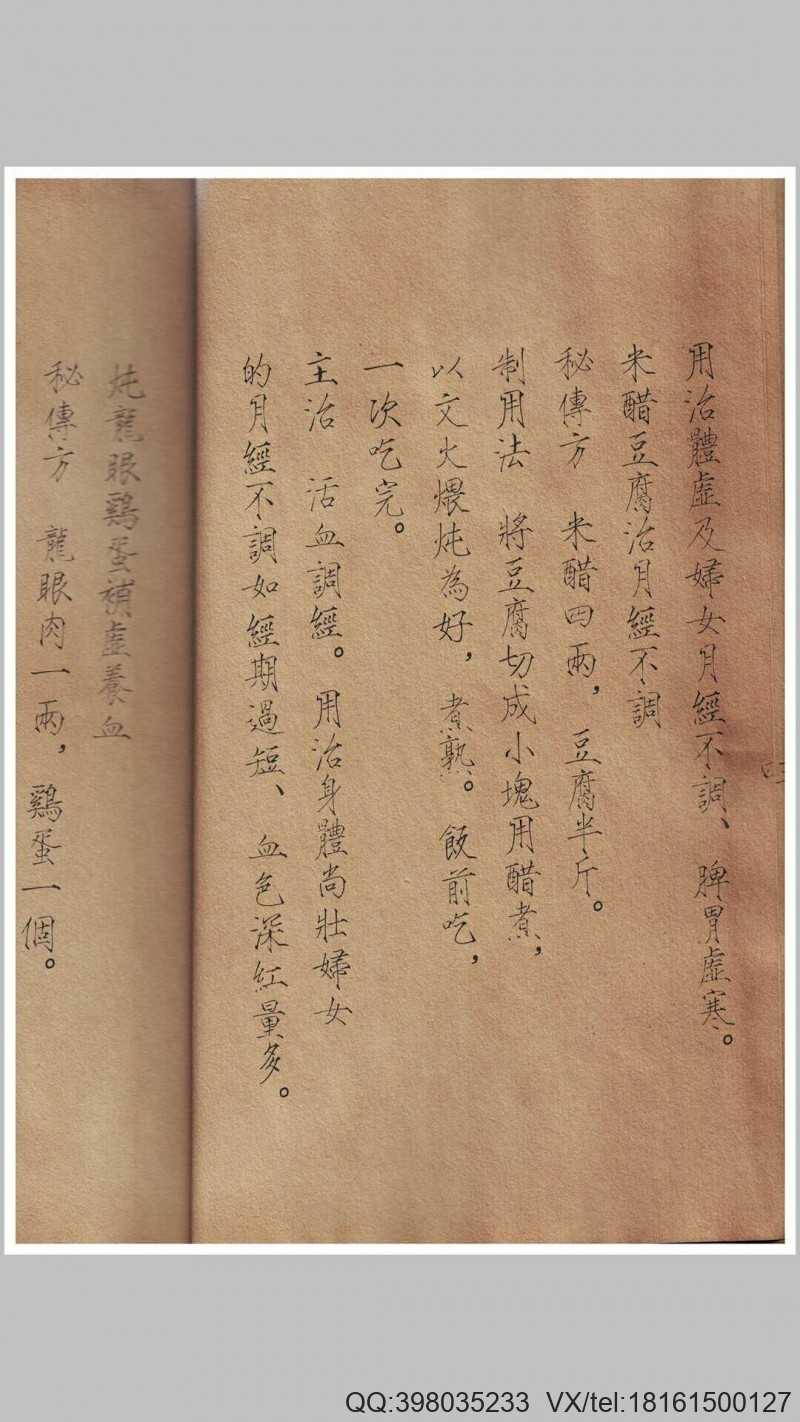 用治體虛及婦女月經不調、脾胃虛寒。
米醋豆腐治月經不調
秘傳方 米醋四兩，豆腐半斤。
制用法 將豆腐切成小塊用醋煮，
以文火煨炖為好，煮熟。飯前吃，
一次吃完。
主治 活血調經。用治身體尚壯婦女
的月經不調如經期過短、血色深紅量多。
炖龍眼鷄蛋補虛養血
秘傳方 龍眼肉一兩，鷄蛋一個。
QQ:398035233 VX/tel:18161500127